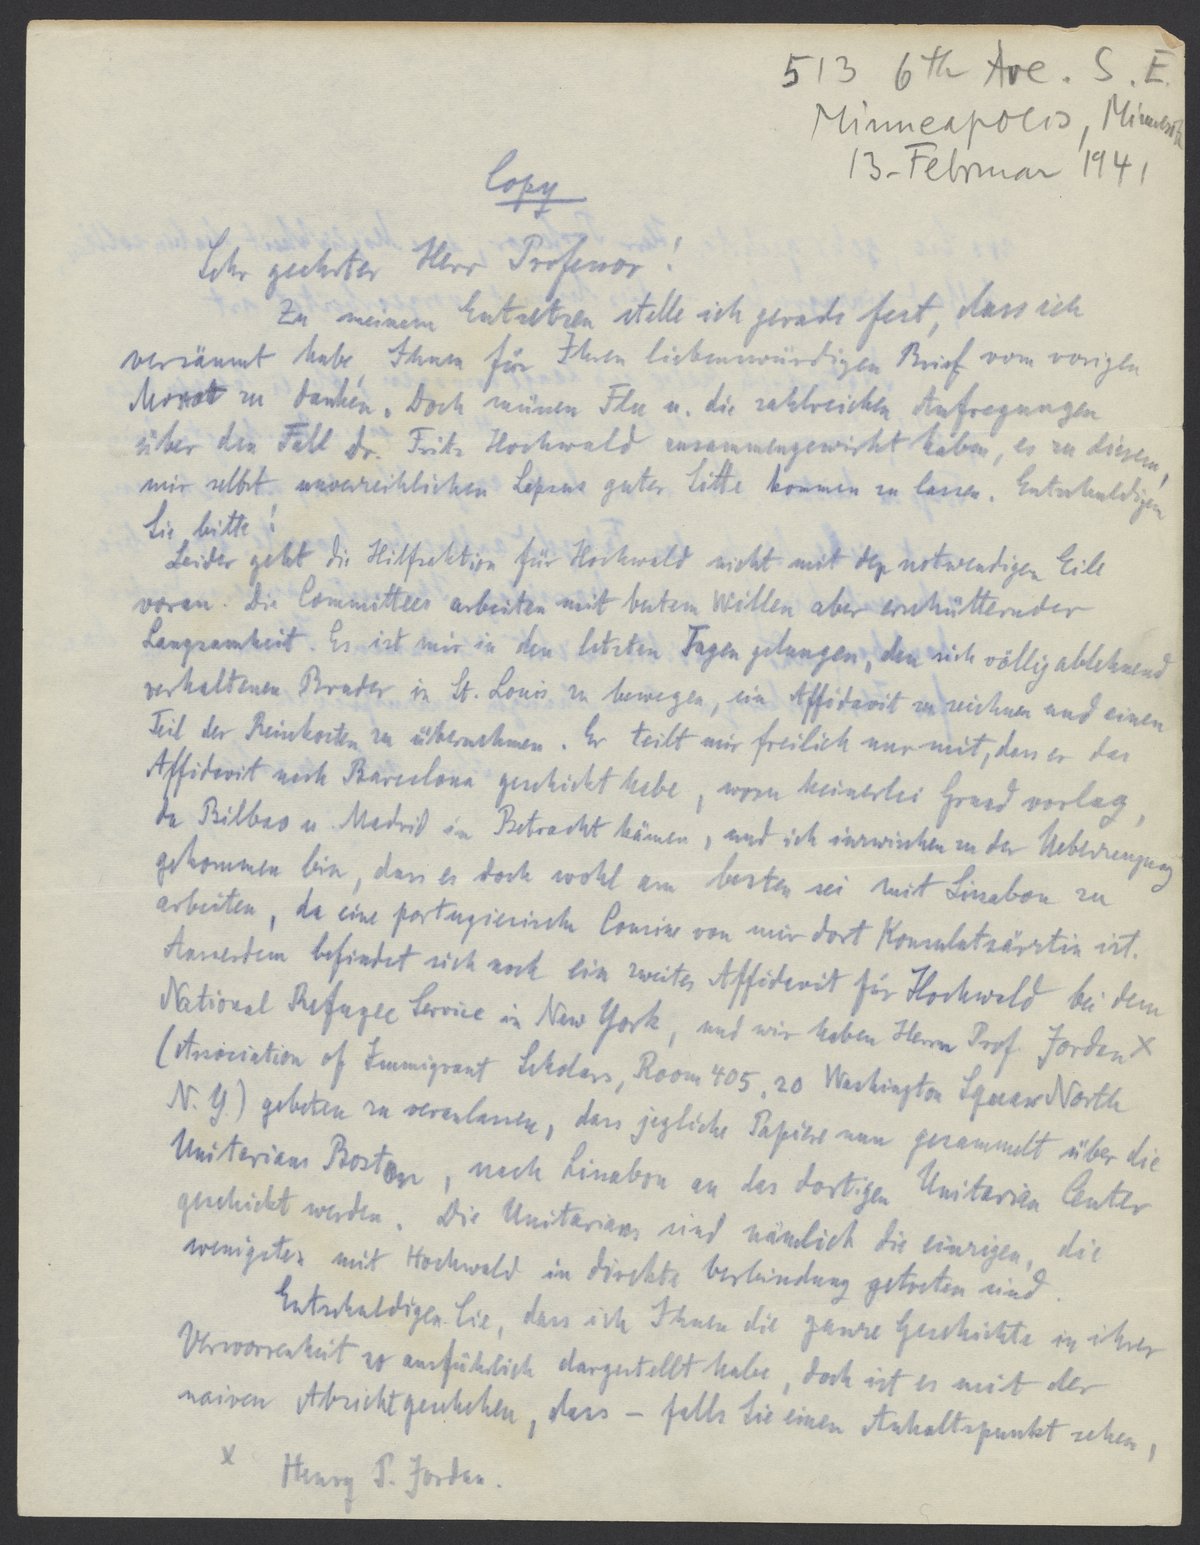 513 6th Ave. S. E.
Minneapolis, Minnesota
13. Februar 1941
Copy
Sehr geehrter Herr Professor!
Zu meinem Entsetzen stelle ich gerade fest, dass ich
versäumt habe, Ihnen für Ihren liebenswürdigen Brief vom vorigen
Monat zu danken. Doch müssen Flu u. die zahlreichen Aufregungen
über den Fall Dr. Fritz Hochwald zusammengewirkt haben, es zu diesem,
mir selbst unverzeihlichen Lapsus guter Sitte kommen zu lassen. Entschuldigen
Sie bitte!
Leider geht die Hilfsaktion für Hochwald nicht mit der notwendigen Eile
voran. Die Committees arbeiten mit bestem Willen aber erschütternder
Langsamkeit. Es ist mir in den letzten Tagen gelungen, den sich völlig ablehnend
verhaltenen Bruder in St. Louis zu bewegen, ein Affidavit zu zeichnen und einen
Teil der Reisekosten zu übernehmen. Er teilt mir freilich nur mit, dass er das
Affidavit nach Barcelona geschickt habe, wozu keinerlei Grund vorlag,
da Bilbao u. Madrid in Betracht kämen, und ich inzwischen zu der Ueberzeugung
gekommen bin, dass es doch wohl am besten sei mit Lissabon zu
arbeiten, da eine portugiesische Cousine von mir dort Konsulatsärztin ist.
Ausserdem befindet sich noch ein zweites Affidavit für Hochwald bei dem
National Refugee Service in New York, und wir haben Herrn Prof. Jordan x
(Association of Immigrant Scholars, Room 405, 20 Washington Square North
N. Y.) gebeten zu veranlassen, dass jegliche Papiere nun gesammelt über die
Unitarians Boston, nach Lissabon an das dortigen Unitarian Center
geschickt werden. Die Unitarians sind nämlich die einzigen, die
wenigstens mit Hochwald in direkte Verbindung getreten sind.
Entschuldigen Sie, dass ich Ihnen die ganze Geschichte in ihrer
Verworrenheit so ausführlich dargestellt habe, doch ist es mit der
naiven Absicht geschehen, dass – falls Sie einen Anhaltspunkt sehen,
x Henry P. Jordan.